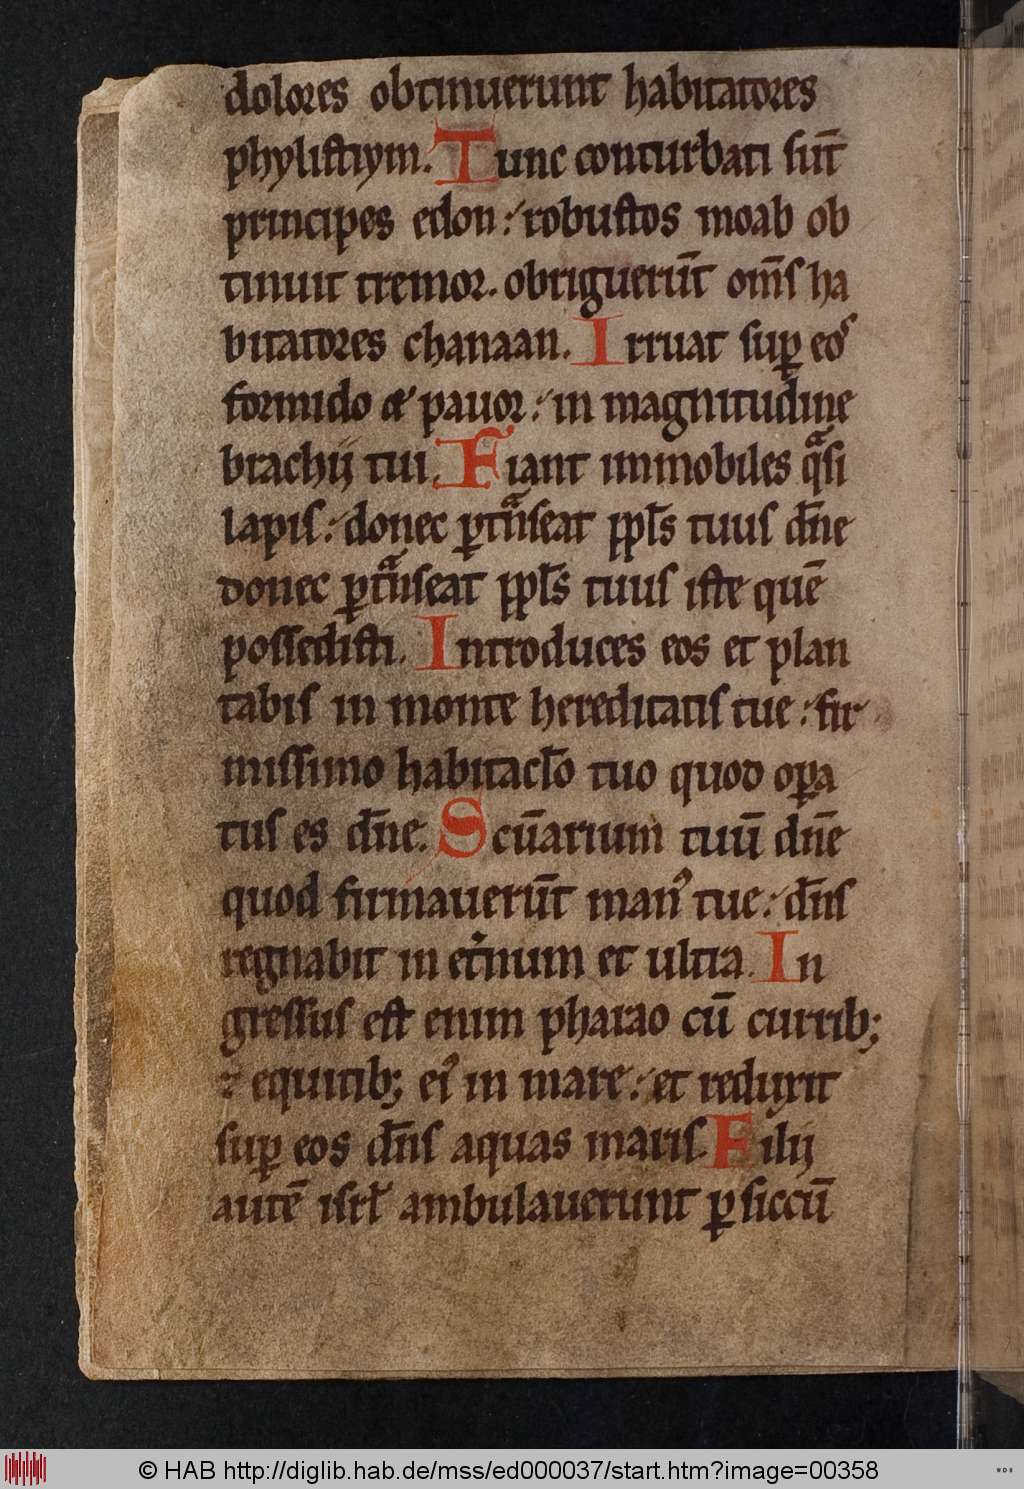 dolores obtinuerunt habitatores
phylistiym. Tunc conturbati sūt
principes edon: robustos moab ob
tinuit tremor. obriguerūt om̄s ha
bitatores chanaan. Irruat suꝑ eos
formido & pauor: in magnitudine
brachij tui. Fiant immobiles qᵃsi
lapis: donec ꝑtᵃnseat ppl̄s tuus dn̄e
donec ꝑtᵃnseat ppl̄s tuus iste quē
possedisti. Introduces eos et plan
tabis in monte hereditatis tue: fir
missimo habitacl̄o tuo quod oꝑa
tus es dn̄e. Scūarium tuū dn̄e
quod firmauerūt manꝰ tue: dn̄s
regnabit in et̓num et ultra. In
gressus est enim pharao cū curribꝫ
⁊ equitibꝫ eiꝰ in mare: et reduxit
suꝑ eos dn̄s aquas maris. Filij
autē isrl̄ ambulauerunt ꝑ siccū
© HAB http://diglib.hab.de/mss/ed000037/start.htm?image=00358